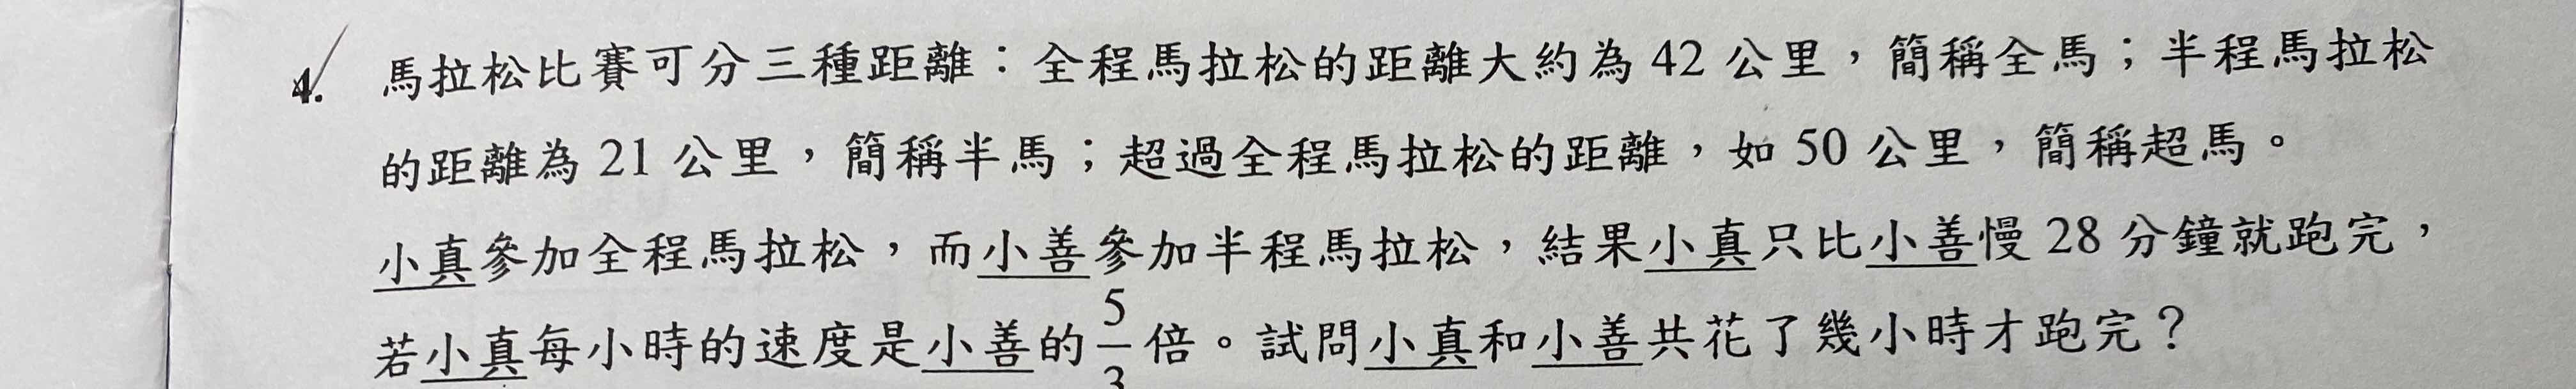 4. 馬拉松比賽可分三種距離：全程馬拉松的距離大約為 42 公里，簡稱全馬；半程馬拉松
的距離為 21 公里，簡稱半馬；超過全程馬拉松的距離，如 50 公里，簡稱超馬。
小真參加全程馬拉松，而小善參加半程馬拉松，結果小真只比小善慢 28 分鐘就跑完，
若小真每小時的速度是小善的 5/3 倍。試問小真和小善共花了幾小時才跑完？